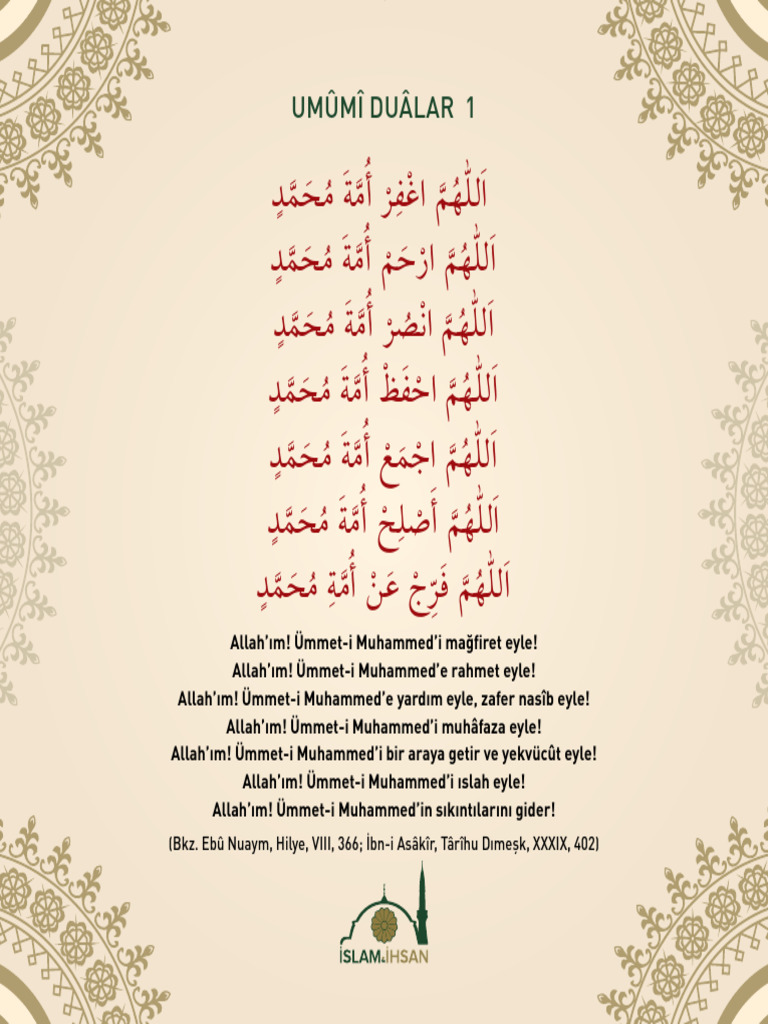 UMÛMÎ DUÂLAR 1
اَللّٰهُمَّ اغْفِرْ أُمَّةَ مُحَمَّدٍ
اَللّٰهُمَّ ارْحَمْ أُمَّةَ مُحَمَّدٍ
اَللّٰهُمَّ انْصُرْ أُمَّةَ مُحَمَّدٍ
اَللّٰهُمَّ احْفَظْ أُمَّةَ مُحَمَّدٍ
اَللّٰهُمَّ اجْمَعْ أُمَّةَ مُحَمَّدٍ
اَللّٰهُمَّ أَصْلِحْ أُمَّةَ مُحَمَّدٍ
اَللّٰهُمَّ فَرِّجْ عَنْ أُمَّةِ مُحَمَّدٍ
Allah’ım! Ümmet-i Muhammed’i mağfiret eyle!
Allah’ım! Ümmet-i Muhammed’e rahmet eyle!
Allah’ım! Ümmet-i Muhammed’e yardım eyle, zafer nasîb eyle!
Allah’ım! Ümmet-i Muhammed’i muhâfaza eyle!
Allah’ım! Ümmet-i Muhammed’i bir araya getir ve yekvücût eyle!
Allah’ım! Ümmet-i Muhammed’i ıslah eyle!
Allah’ım! Ümmet-i Muhammed’in sıkıntılarını gider!
(Bkz. Ebû Nuaym, Hilye, VIII, 366; İbn-i Asâkîr, Târîhu Dımeşk, XXXIX, 402)
İSLAM&İHSAN